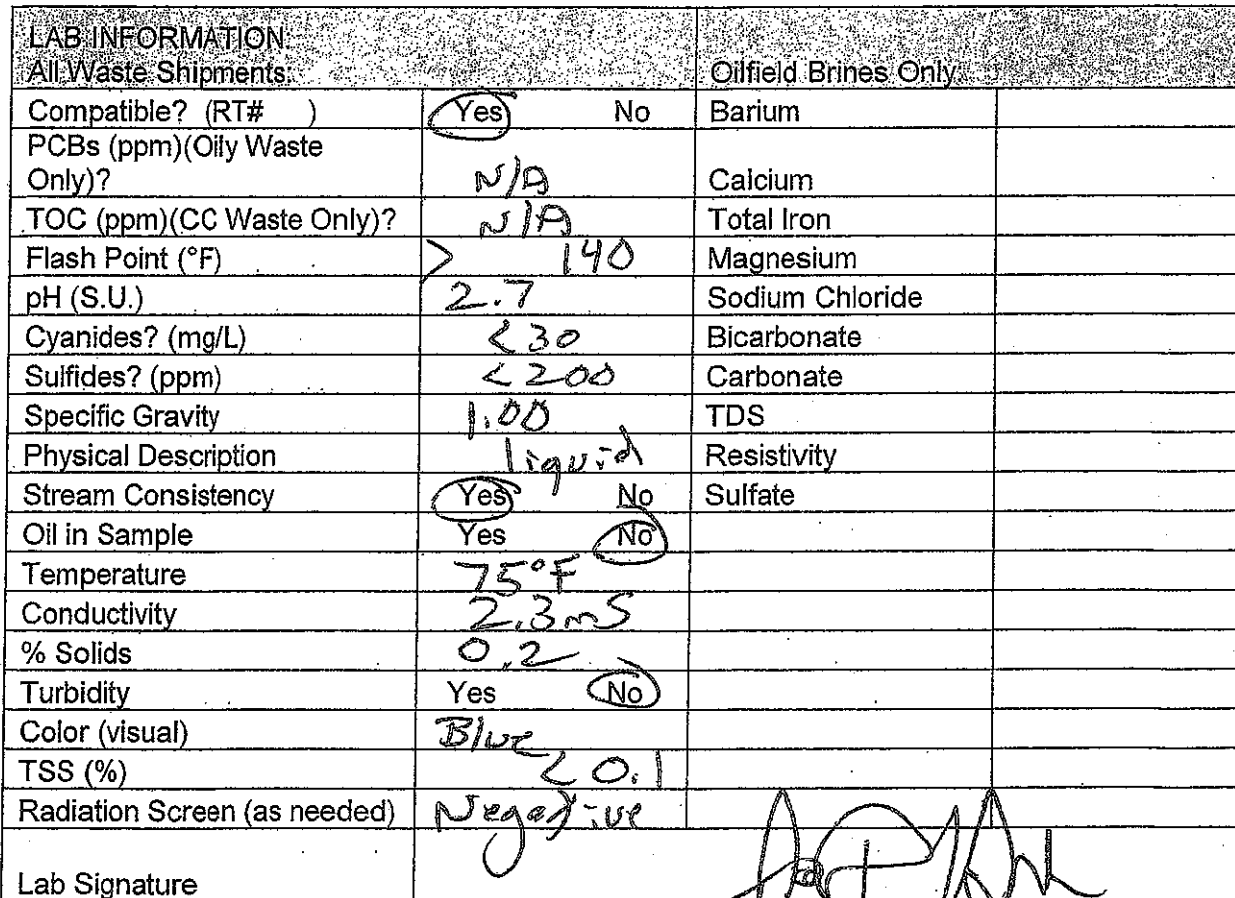 LAB INFORMATION
All Waste Shipments: Oilfield Brines Only
Compatible? (RT# ) Yes No Barium
PCBs (ppm)(Oily Waste
Only)? N/A Calcium
TOC (ppm)(CC Waste Only)? N/A Total Iron
Flash Point (°F) > 140 Magnesium
pH (S.U.) 2.7 Sodium Chloride
Cyanides? (mg/L) <30 Bicarbonate
Sulfides? (ppm) <200 Carbonate
Specific Gravity 1.00 TDS
Physical Description liquid Resistivity
Stream Consistency Yes No Sulfate
Oil in Sample Yes No
Temperature 75°F
Conductivity 2.3mS
% Solids 0.2
Turbidity Yes No
Color (visual) Blue
TSS (%) <0.1
Radiation Screen (as needed) Negative
Lab Signature